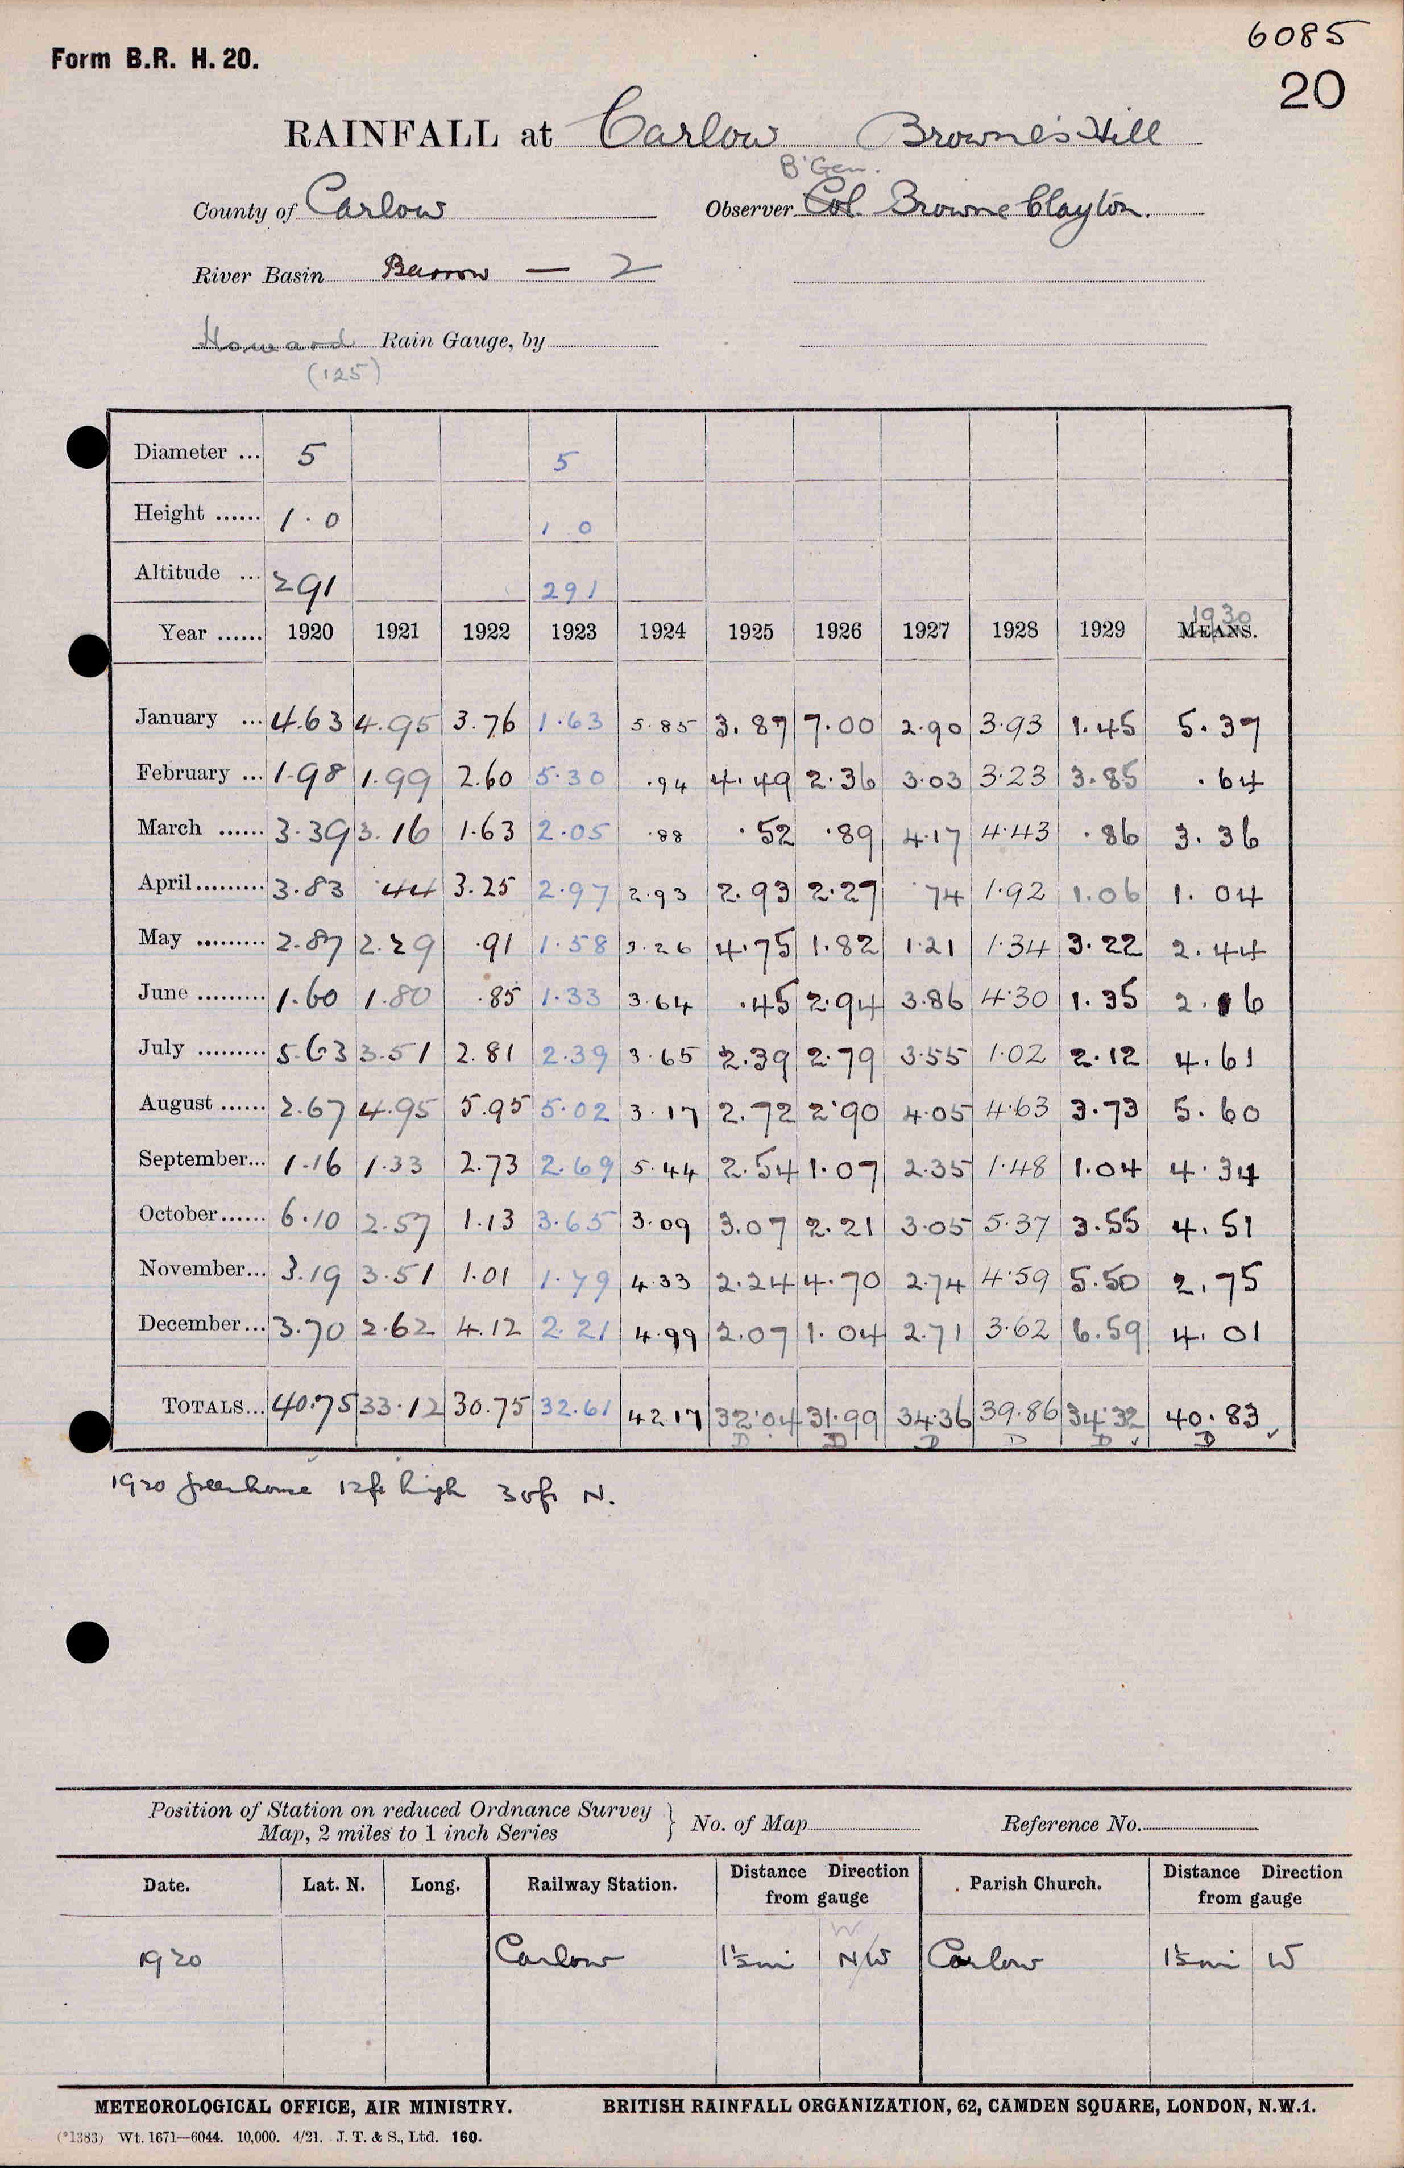 6085
Form B.R. H. 20.
20
RAINFALL at Carlow Browne's Hill
B'Gen.
County of Carlow Observer Col. Browne Clayton.
River Basin Barrow — 2
Howard Rain Gauge, by
(125)
Diameter ... 5 5
Height ...... 1.0 1 0
Altitude ... 291 291
1930
Year ...... 1920 1921 1922 1923 1924 1925 1926 1927 1928 1929 MEANS.
January ... 4.63 4.95 3.76 1.63 5.85 3.87 7.00 2.90 3.93 1.45 5.37
February ... 1.98 1.99 2.60 5.30 .94 4.49 2.36 3.03 3.23 3.85 .64
March ...... 3.39 3.16 1.63 2.05 .88 .52 .89 4.17 4.43 .86 3.36
April ......... 3.83 .44 3.25 2.97 2.93 2.93 2.27 .74 1.92 1.06 1.04
May ......... 2.87 2.29 .91 1.58 3.26 4.75 1.82 1.21 1.34 3.22 2.44
June ......... 1.60 1.80 .85 1.33 3.64 .45 2.94 3.86 4.30 1.35 2.16
July ......... 5.63 3.51 2.81 2.39 3.65 2.39 2.79 3.55 1.02 2.12 4.61
August ...... 2.67 4.95 5.95 5.02 3.17 2.72 2.90 4.05 4.63 3.73 5.60
September... 1.16 1.33 2.73 2.69 5.44 2.54 1.07 2.35 1.48 1.04 4.34
October...... 6.10 2.57 1.13 3.65 3.09 3.07 2.21 3.05 5.37 3.55 4.51
November... 3.19 3.51 1.01 1.79 4.33 2.24 4.70 2.74 4.59 5.50 2.75
December... 3.70 2.62 4.12 2.21 4.99 2.07 1.04 2.71 3.62 6.59 4.01
TOTALS... 40.75 33.12 30.75 32.61 42 17 32.04 31.99 34.36 39.86 34.32 40.83
D D D D D D
1920 greenhouse 12ft high 30ft N.
Position of Station on reduced Ordnance Survey
Map, 2 miles to 1 inch Series } No. of Map Reference No.
Date. Lat. N. Long. Railway Station. Distance Direction from gauge Parish Church. Distance Direction from gauge
W
1920 Carlow 1½mi NW Carlow 1½mi W
METEOROLOGICAL OFFICE, AIR MINISTRY. BRITISH RAINFALL ORGANIZATION, 62, CAMDEN SQUARE, LONDON, N.W.1.
(*1383) Wt. 1671—6044. 10,000. 4/21. J. T. & S., Ltd. 160.